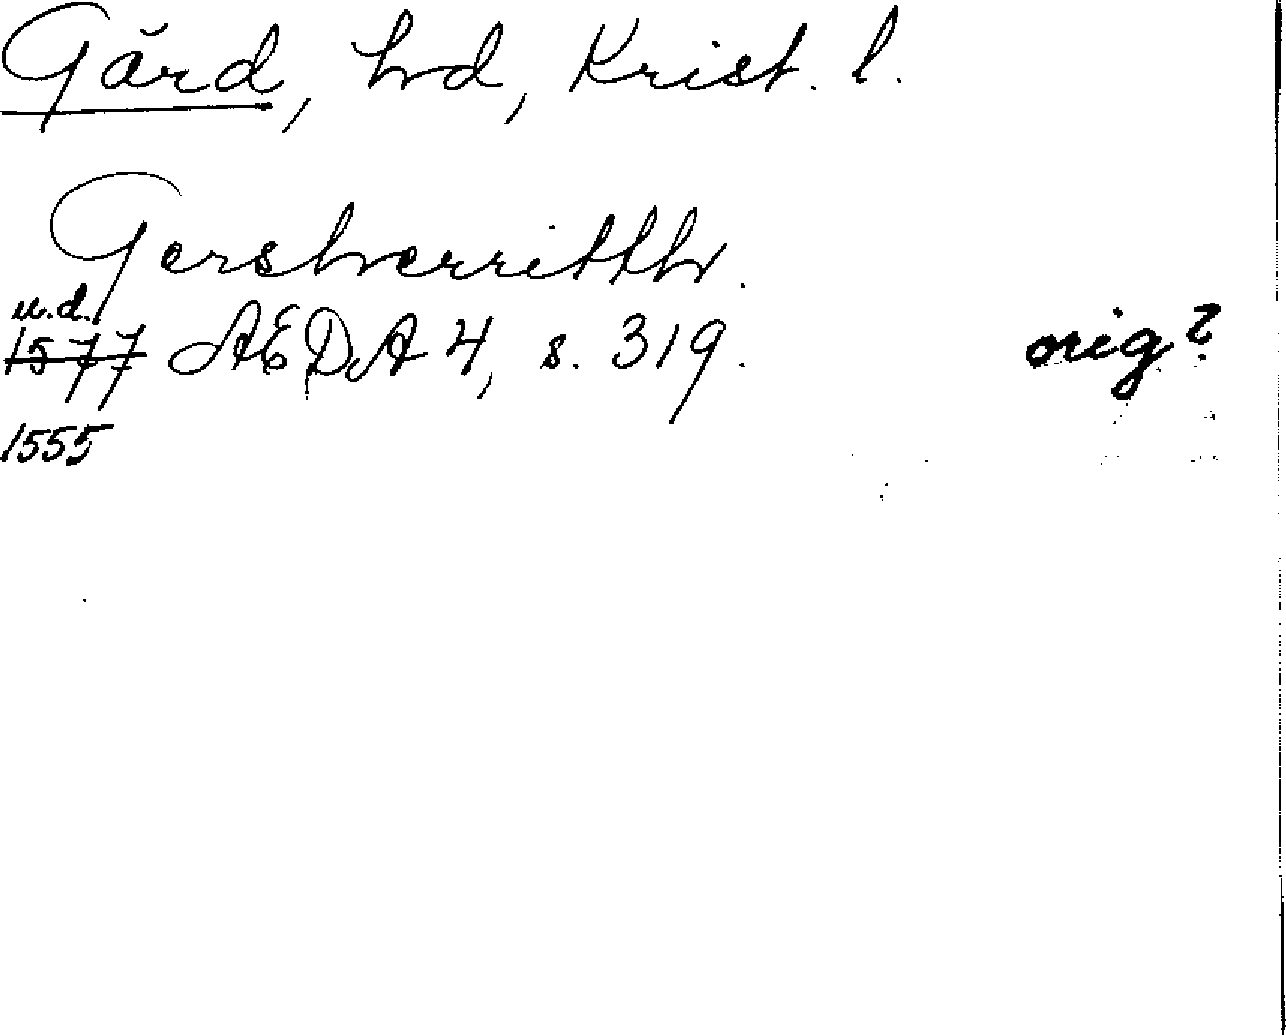 Gärd, hd, Krist. l.
Gersherritth.
u.d.
1577 AEDA 4, s. 319. orig?
1555